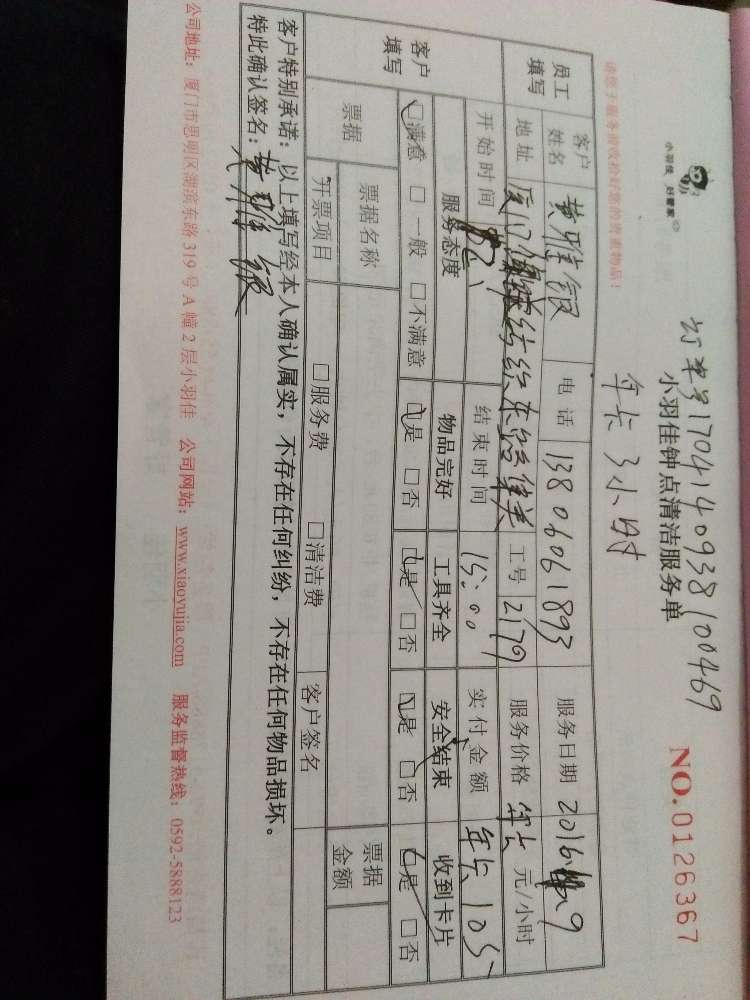 小羽佳 好管家
订单号17041409381 00469
小羽佳钟点清洁服务单
NO.0126367
年卡3小时
请您于服务前收拾好您的贵重物品!
员工填写 客户姓名 黄雅银 电话 13806061893 服务日期 2016
地址 工号 2179 服务价格 年卡 元/小时
开始时间 结束时间 15:00 实付金额 年卡105
客户填写 服务态度 物品完好 工具齐全 安全结束 收到卡片
□满意 □一般 □不满意 □是 □否 □是 □否 □是 □否 □是 □否
票据 票据名称 □服务费 □清洁费 客户签名 票据金额
开票项目
客户特别承诺:以上填写经本人确认属实,不存在任何纠纷,不存在任何物品损坏。
特此确认签名:黄雅银
公司地址:厦门市思明区湖滨东路319号A幢2层小羽佳 公司网站:www.xiaoyujia.com 服务监督热线:0592-5888123